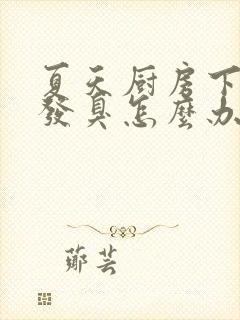 夏天厨房下
發臭怎麼办
鄭芸